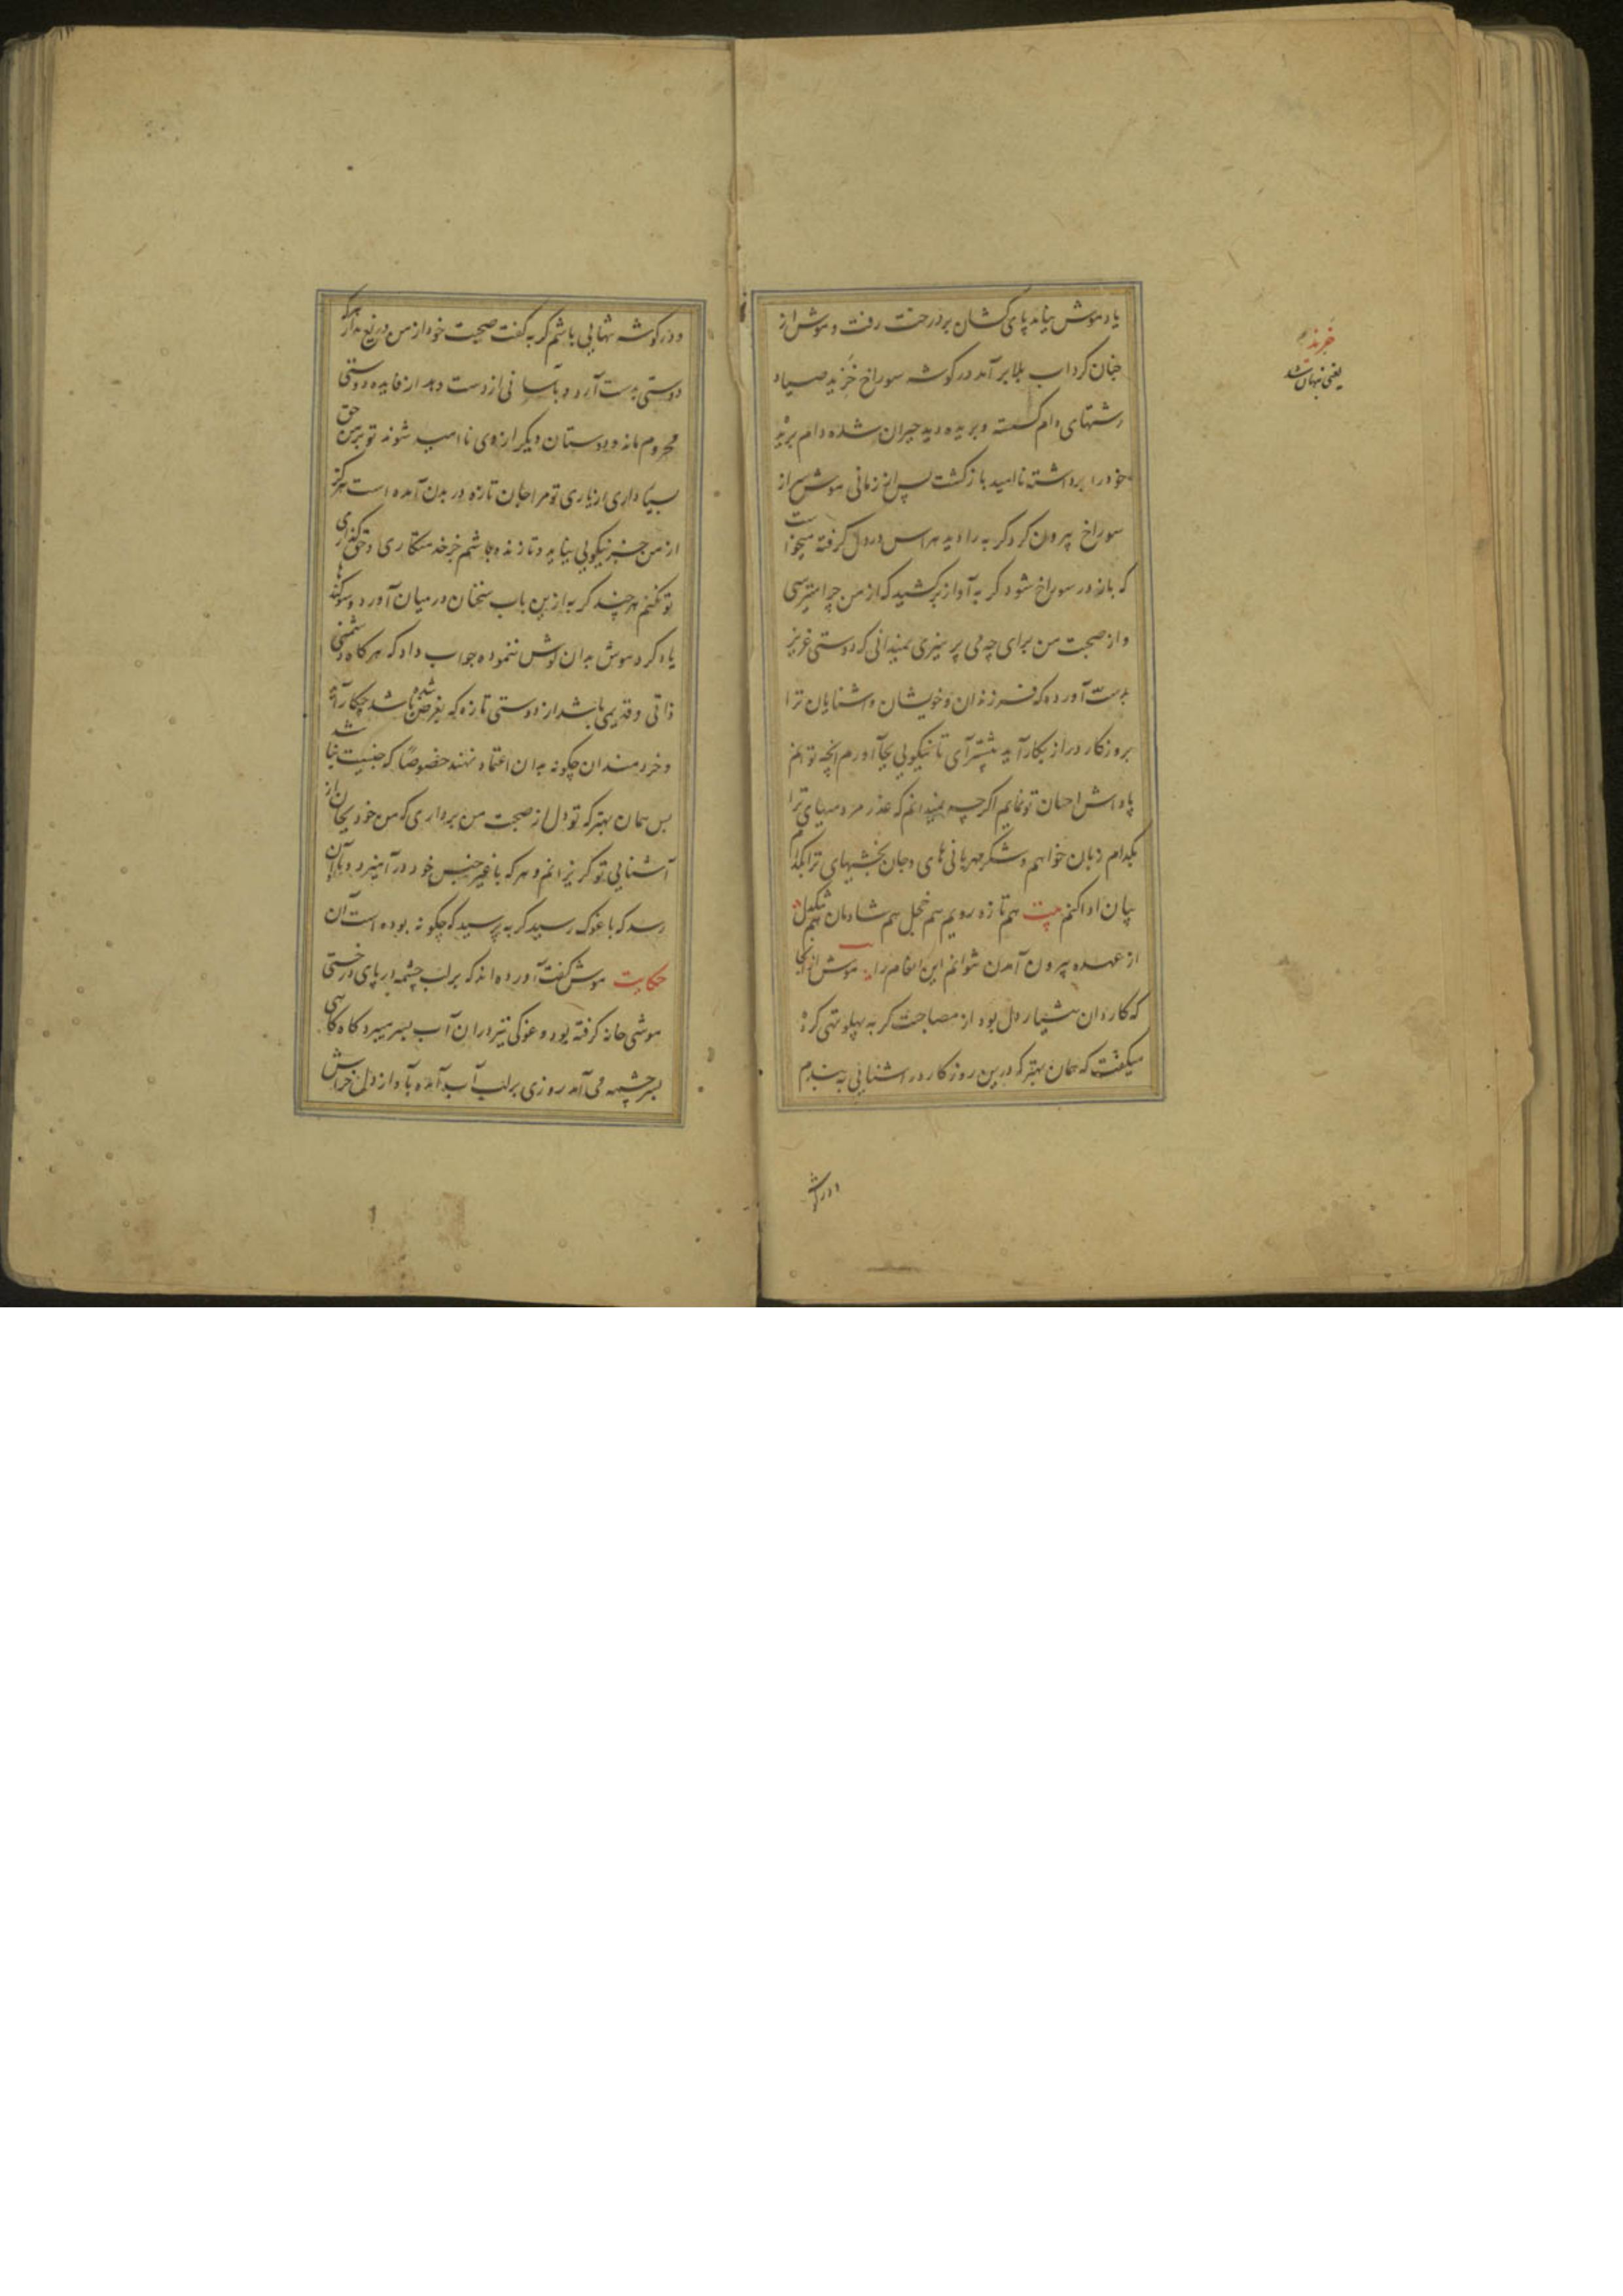 یاد موش بیامد پای کشان بر درخت رفت و موش از
چنان گرداب بلا برآمد در گوشه سوراخ خزید صیاد
رشتهای دام گسسته و بریده دید حیران شده دام بریده
خود را برداشته ناامید بازگشت پس از زمانی موش سر از
سوراخ بیرون کرد گربه را دید هراس در دل گرفته میخواست
که باز در سوراخ شود گربه آواز برکشید که از من چرا میترسی
و از صحبت من برای چه می پرهیزی نمیدانی که دوستی عزیز
بدست آورده که فرزندان و خویشان و آشنایان ترا
بروزگار دراز بکار آید پیشتر آی تا نیکویی بجا آورم آنچه توانم
پاداش احسان تو نمایم اگرچه نمیدانم که عذر مردمیهای ترا
بکدام زبان خواهم و شکر مهربانی های و جان بخشیهای ترا بکدام
بیان ادا کنم بیت هم تازه رویم هم خجل هم شادمان هم تنگدل
از عهده بیرون آمدن نتوانم این انعام را موش از آنجا
که کاردان هشیار دل بود از مصاحبت گربه پهلو تهی کرد
میگفت که همان بهتر که درین روزگار در آشنایی به بندم
در گوشه
خزید
یعنی نهان شد
و در گوشه تنهایی باشم گربه گفت صحبت خود از من دریغ مدار هرکه
دوستی بدست آرد و بآسانی از دست دهد از فایده دوستی
محروم ماند و دوستان دیگر از وی ناامید شوند تو بر من حق
بسیار داری از یاری تو مرا جان تازه در بدن آمده است هرگز
از من جز نیکویی نیاید و تا زنده باشم جز خدمتگاری و حق گذاری
تو نکنم هرچند گربه ازین باب سخنان در میان آورد و سوگندها
یاد کرد موش بدان گوش ننموده جواب داد که هرگاه دشمنی
ذاتی و قدیمی باشد از دوستی تازه که بغرض شده باشد چکار آید
و خردمندان چگونه بدان اعتماد نهند خصوصاً که جنسیت نباشد
پس همان بهتر که تو دل از صحبت من برداری که من خود بجان از
آشنایی تو گریزانم و هرکه با غیر جنس خود درآمیزد بدو آن
رسد که با غوک رسید گربه پرسید که چگونه بوده است آن
حکایت موش گفت آورده اند که بر لب چشمه در پای درختی
موشی خانه گرفته بود و غوکی نیز در آن آب بسر میبرد گاه گاهی
بسر چشمه می آمد روزی بر لب آب آمده بآواز دل خراش